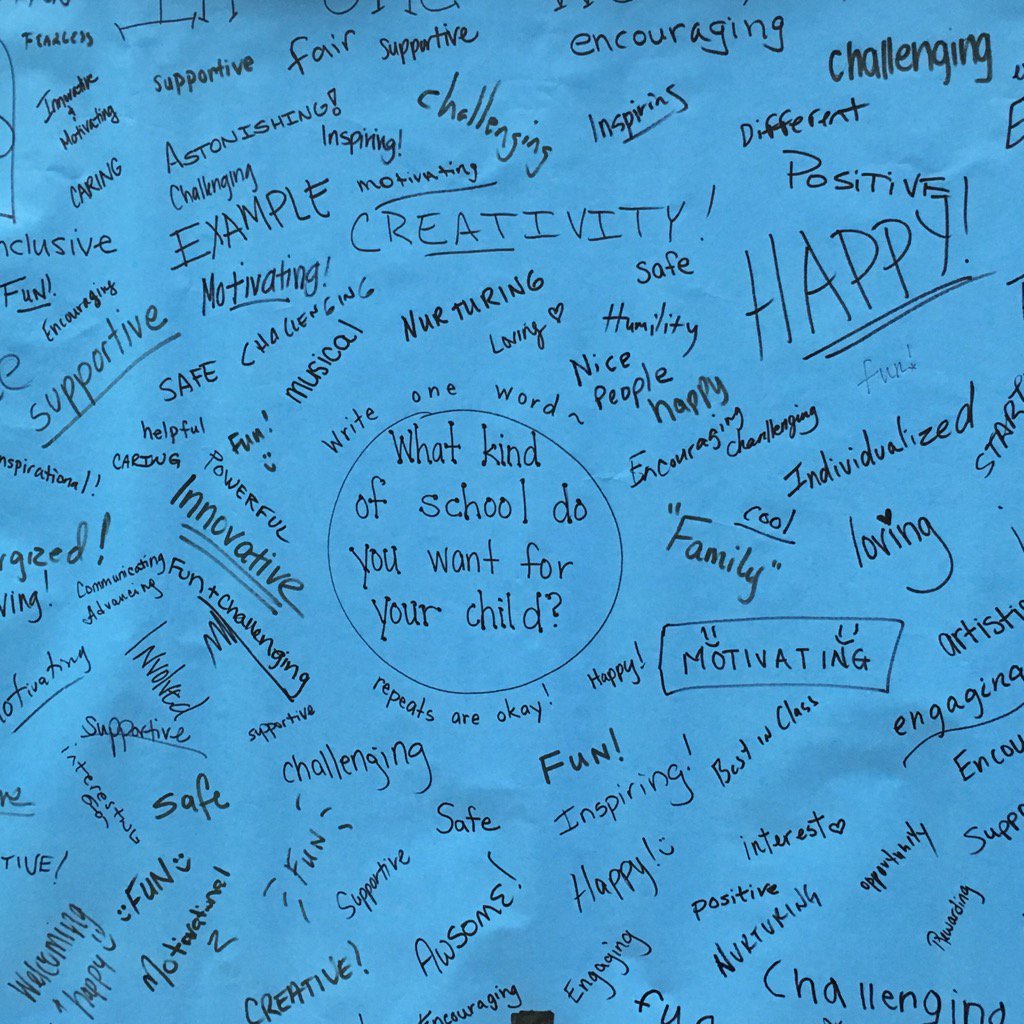 FEARLESS
supportive
fair
supportive
encouraging
challenging
Innovative
&
Motivating
ASTONISHING!
Inspiring!
challenging
Inspiring
Different
CARING
Challenging
motivating
POSITIVE
EXAMPLE
CREATIVITY!
HAPPY!
nclusive
FUN!
Encouraging
Motivating!
CHALLENGING
NURTURING
Safe
Humility
Loving
supportive
SAFE
musical
Nice
People
happy
fun!
helpful
Fun!
Write one word
Encouraging
challenging
Individualized
START
nspirational!
CARING
POWERFUL
Innovative
What kind
of school do
you want for
your child?
repeats are okay!
"Family"
cool
loving
rgized!
Communicating
Advancing
Fun + challenging
Involved
otivating
Supportive
supportive
Happy!
MOTIVATING
artisti
engaging
Encou
interesting
challenging
FUN!
Inspiring!
Best in Class
safe
FUN
Safe
interest
opportunity
Supp
TIVE!
FUN
Supportive
Happy!
positive
NURTURING
Rewarding
Welcoming
happy
Motivational
2
AWSOME!
CREATIVE!
Encouraging
Engaging
Fu
Challenging